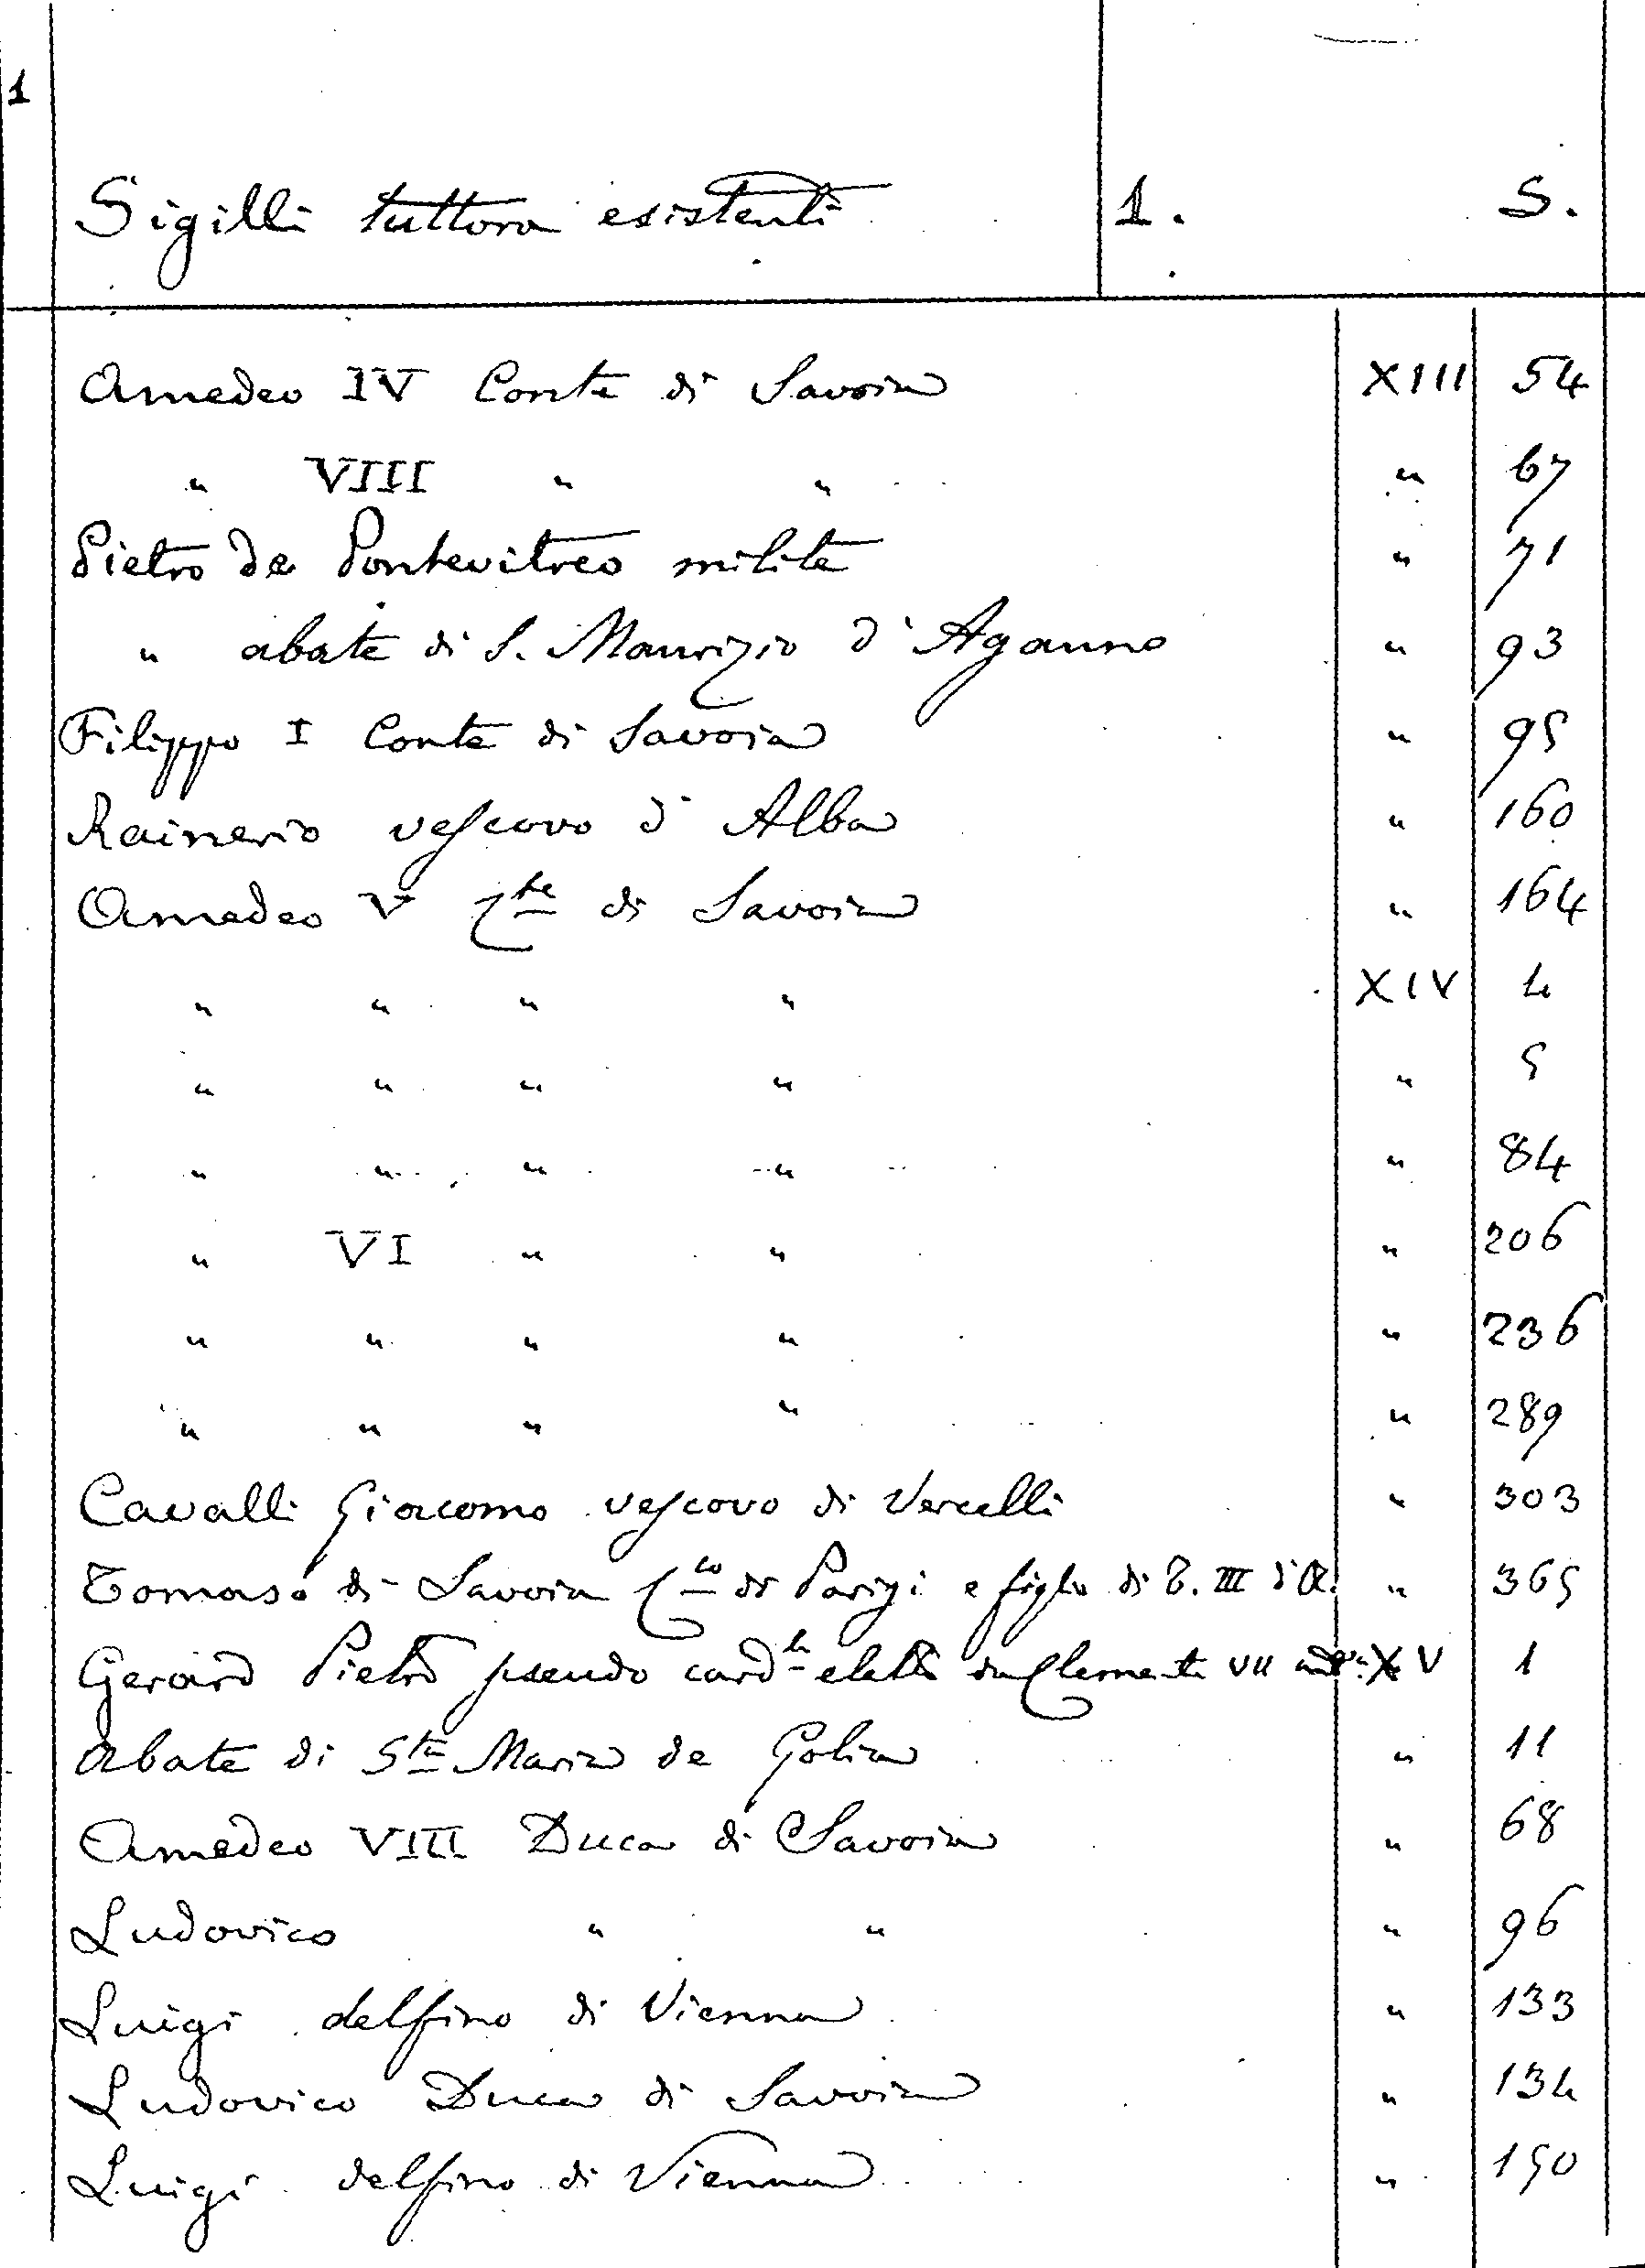 1
Sigilli tuttora esistenti 1. S.
Amedeo IV Conte di Savoia XIII 54
" VIII " " " 67
Pietro de Pontevitreo milite " 71
" abate di S. Maurizio d'Agauno " 93
Filippo I Conte di Savoia " 95
Rainerio vescovo d'Alba " 160
Amedeo V Cte di Savoia " 164
" " " " XIV 4
" " " " " 5
" " " " " 84
" VI " " " 206
" " " " " 236
" " " " " 289
Cavalli Giacomo vescovo di Vercelli " 303
Tomaso di Savoia Cco di Parigi e figlio di T. III d'A. " 365
Gerard Pietro pseudo cardle eletto da Clemente VII XV 1
Abate di Sta Maria de Golia " 11
Amedeo VIII Duca di Savoia " 68
Ludovico " " " 96
Luigi delfino di Vienna " 133
Ludovico Duca di Savoia " 134
Luigi delfino di Vienna " 150